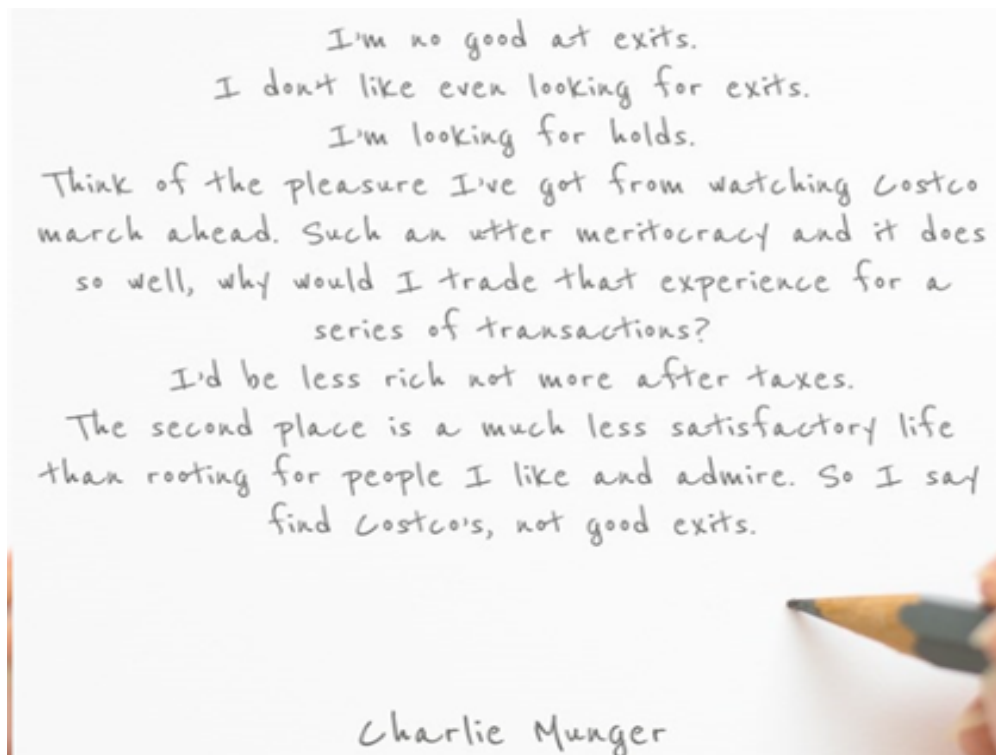 I'm no good at exits.
I don't like even looking for exits.
I'm looking for holds.
Think of the pleasure I've got from watching Costco
march ahead. Such an utter meritocracy and it does
so well, why would I trade that experience for a
series of transactions?
I'd be less rich not more after taxes.
The second place is a much less satisfactory life
than rooting for people I like and admire. So I say
find Costco's, not good exits.
Charlie Munger